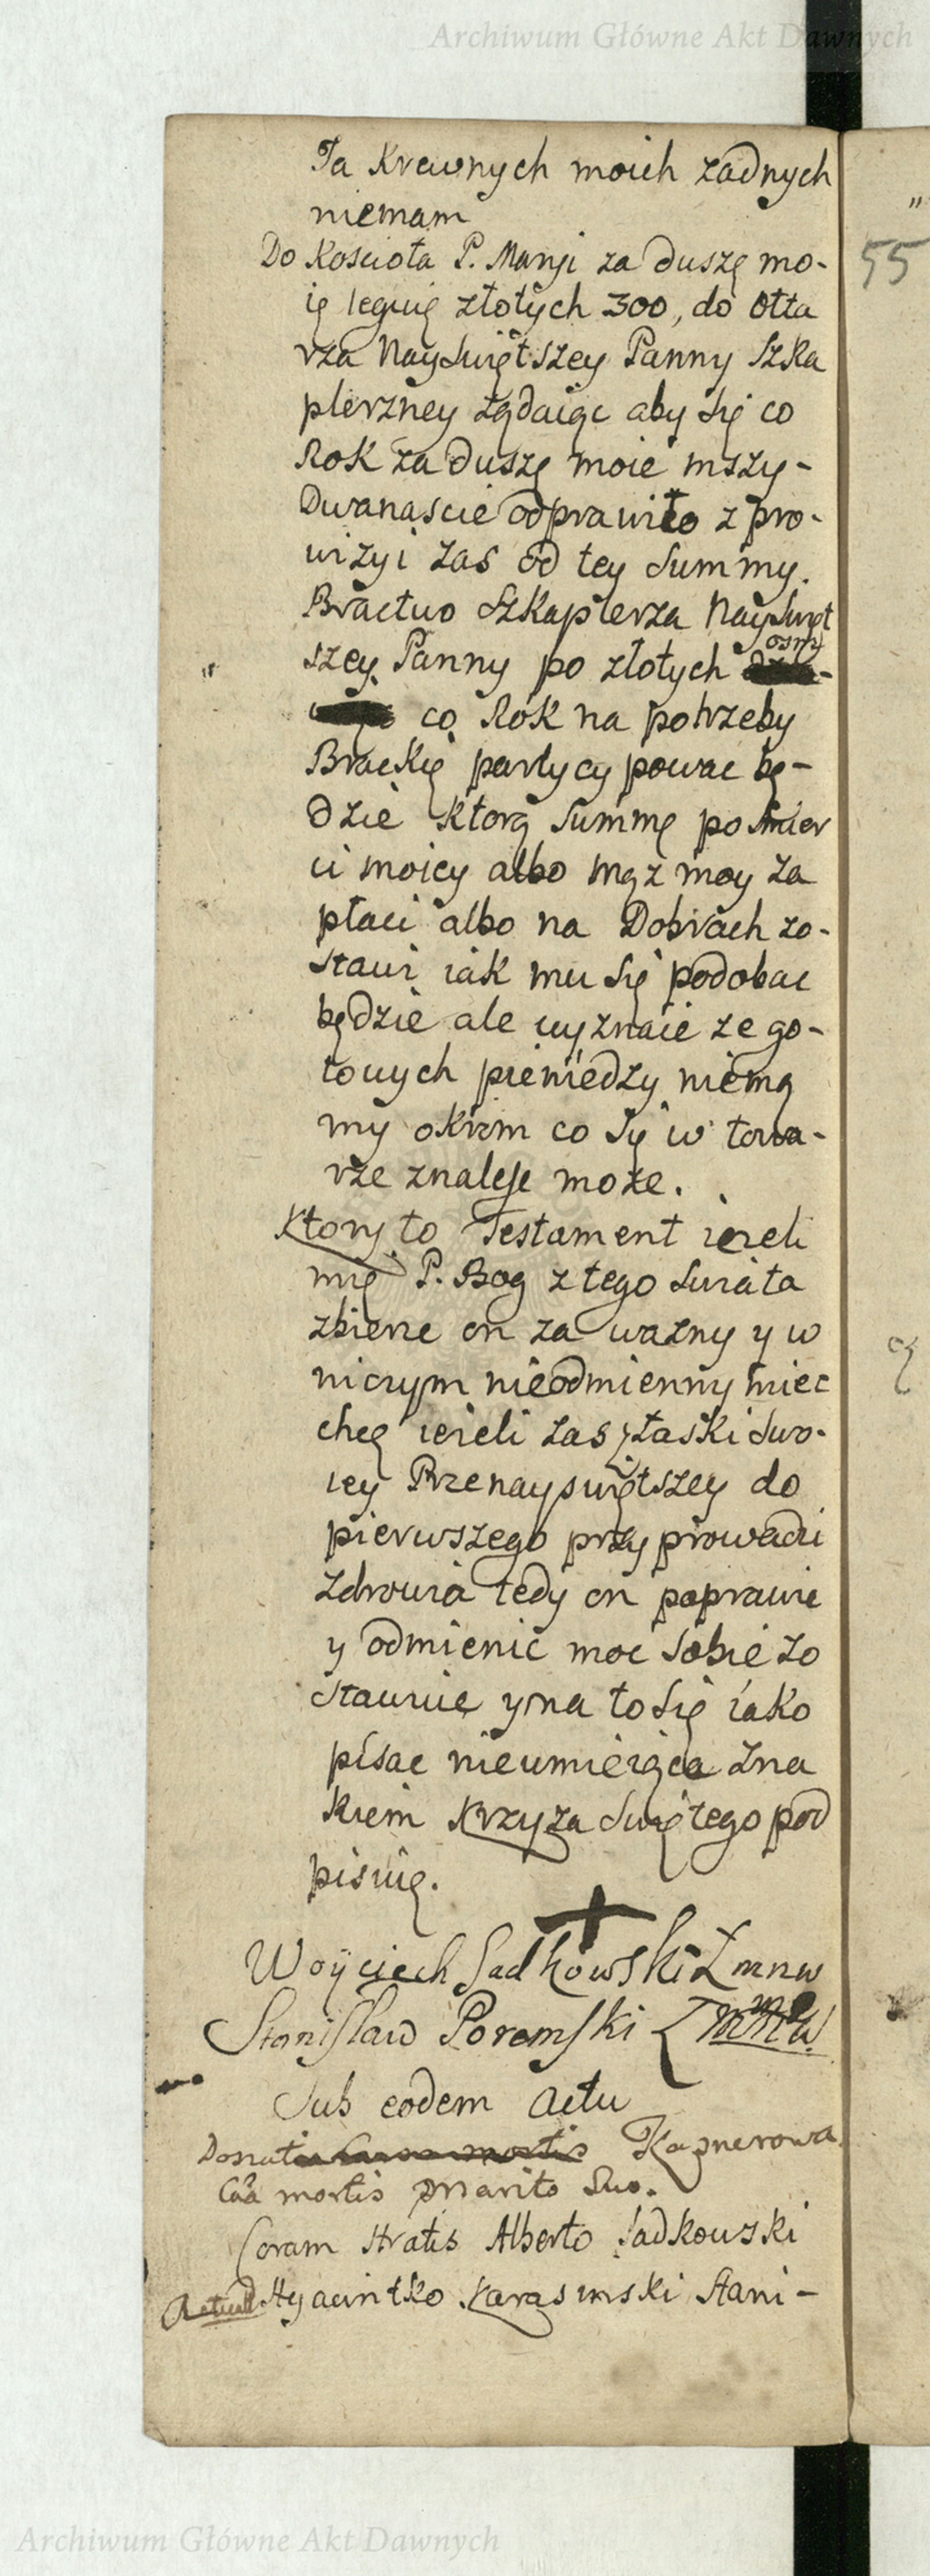 Archiwum Główne Akt Dawnych
Ja Krewnych moich zadnych
niemam
Do Koscioła P. Maryi za duszę mo-
ię leguię złotych 300, do Ołta
rza Nayswiętszey Panny Szka
plerzney ządaiąc aby się co
Rok za duszę moie mszy-
Dwanascie odprawiło z pro-
wizyi zas od tey Summy.
Bractwo Szkaplerza Nayswięt
szey Panny po złotych osmi
co Rok na potrzeby
Brackię partycypowac bę-
dzie ktorą Summę po smier
ci moiey albo mąz moy za
płaci albo na Dobrach zo-
stawi iak mu się podobac
będzie ale wyznaie ze go-
towych pieniedzy niemą
my okrom co się w towa-
rze znalesc moze.
Ktory to Testament iezeli
mię P. Bog z tego swiata
zbierze on za wazny y w
niczym nieodmienny miec
chcę iezeli zas z łaski swo-
iey Przenayswiętszey do
pierwszego przyprowadzi
zdrowia tedy on poprawic
y odmienic moc sobie zo
stawuię y na to się iako
pisac nieumieiąca zna
kiem Krzyza Swiętego pod
pisuię.
Woyciech Sadkowski Ł mnw
Stanisław Poremski Ł
Sub eodem Actu
Donat causa mortis Kaznerowa
Caa mortis Marito Suo.
Coram Stratis Alberto Sadkowski
Hyacintko Karasinski Stani-
55
Archiwum Główne Akt Dawnych